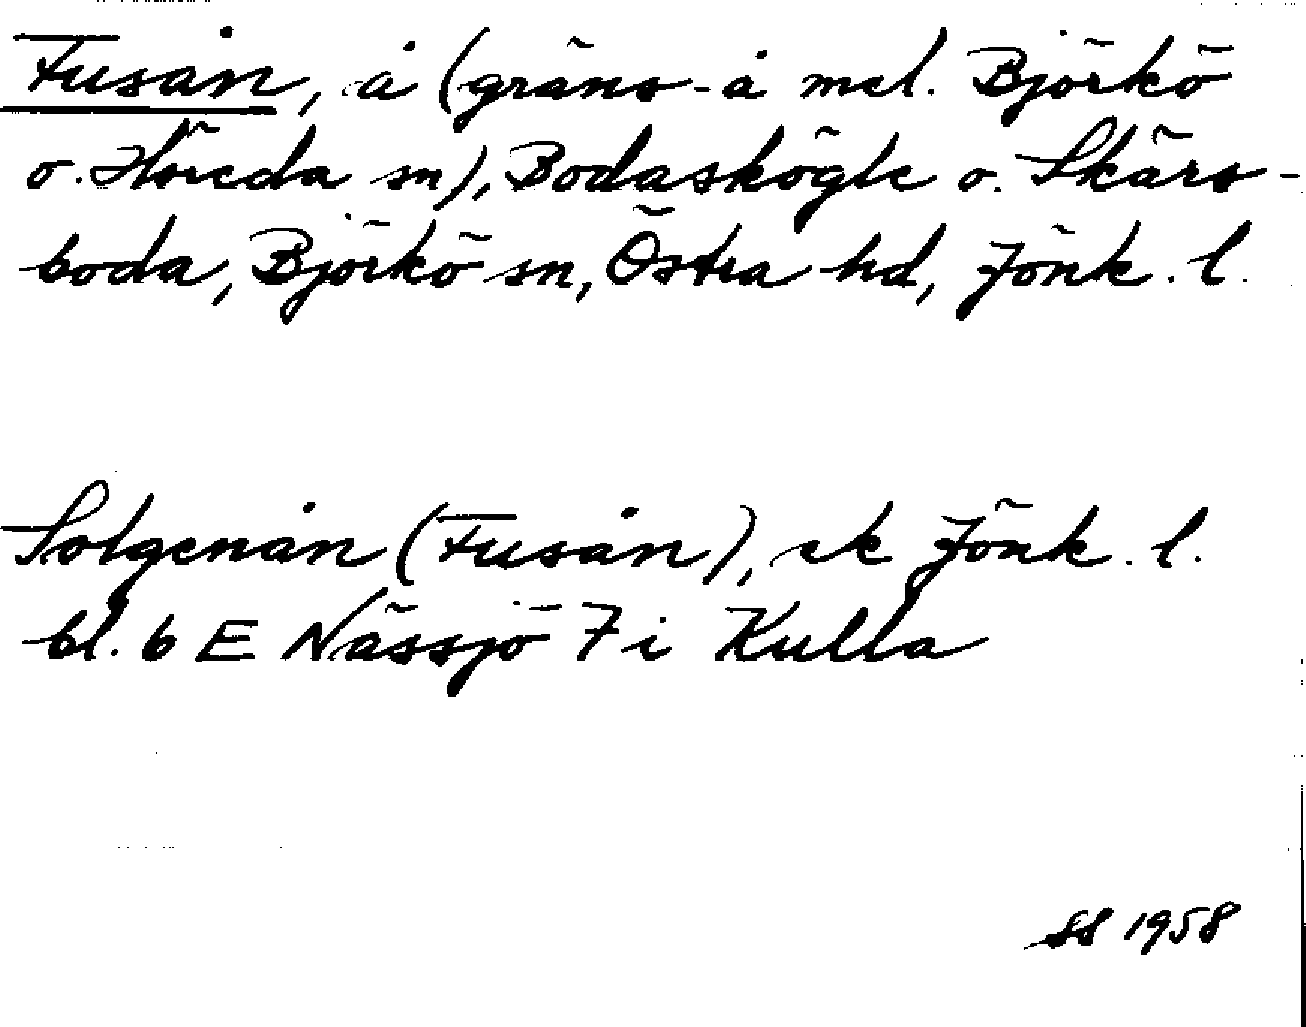 Fusån, å (gräns-å mel. Björkö
o. Höreda sn), Bodaskögle o. Skärs-
boda, Björkö sn, Östra hd, Jönk. l.
Solgenån (Fusån), ek Jönk. l.
bl. 6 E Nässjö 7 i Kulla
SS 1958